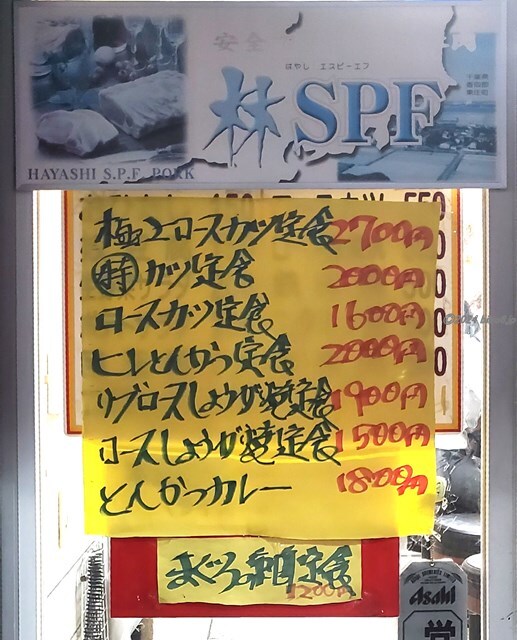 安全
はやし エスピーエフ
林SPF
千葉県
香取郡
東庄町
HAYASHI S.P.F. PORK
550
極上ロースカツ定食 2700円
特 カツ定食 2000円
ロースカツ定食 1600円
ヒレとんかつ定食 2000円
リブロースしょうが焼定食 1900円
ロースしょうが焼定食 1500円
とんかつカレー 1800円
まぐろ刺身定食
1200円
Asahi
営